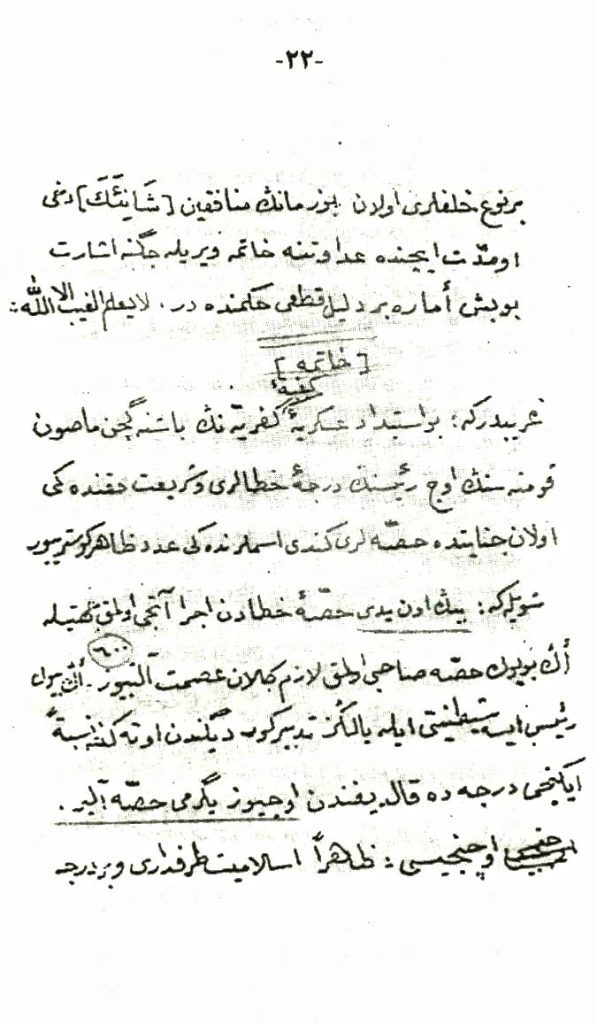 -٢٢-
بر نوع خلفلری اولان بوزمانڭ منافقين [شَانِئَكَ] دخی
او مدّت ایچنده عداوتنه خاتمه ویریله جگنه اشارت
بو بش أماره بر دليل قطعی حکمنده در. لا يعلم الغيب الا الله :
[خاتمه]
کفیهٔ
غریبدرکه؛ بو استبداد عسکریهٔ کفریه نڭ باشنه گچن ماصون
قومته سنڭ اوچ رئیسنڭ درجهٔ خطالری و شریعت حقنده کی
اولان جنایتده حصّه لری کندی اسملرنده کی عدد ظاهر کوسترییور
شویله که: بیڭ اون یدی حصّهٔ خطادن اجرا آتجی اولمق جهتیله
٦٠٠
أڭ بویوك حصّه صاحبی اولمق لازم کلان عصمت آلتییوز.
رئیس ایسه شیطنتی ایله یالڭز تدبیر کوردیگندن اوته کنه نسبةً
ایکینجی درجه ده قالدیغندن اوچیوز یگرمی حصّه آلیر.
اوچنجیسی: ظاهراً اسلامیت طرفداری و بر درجه